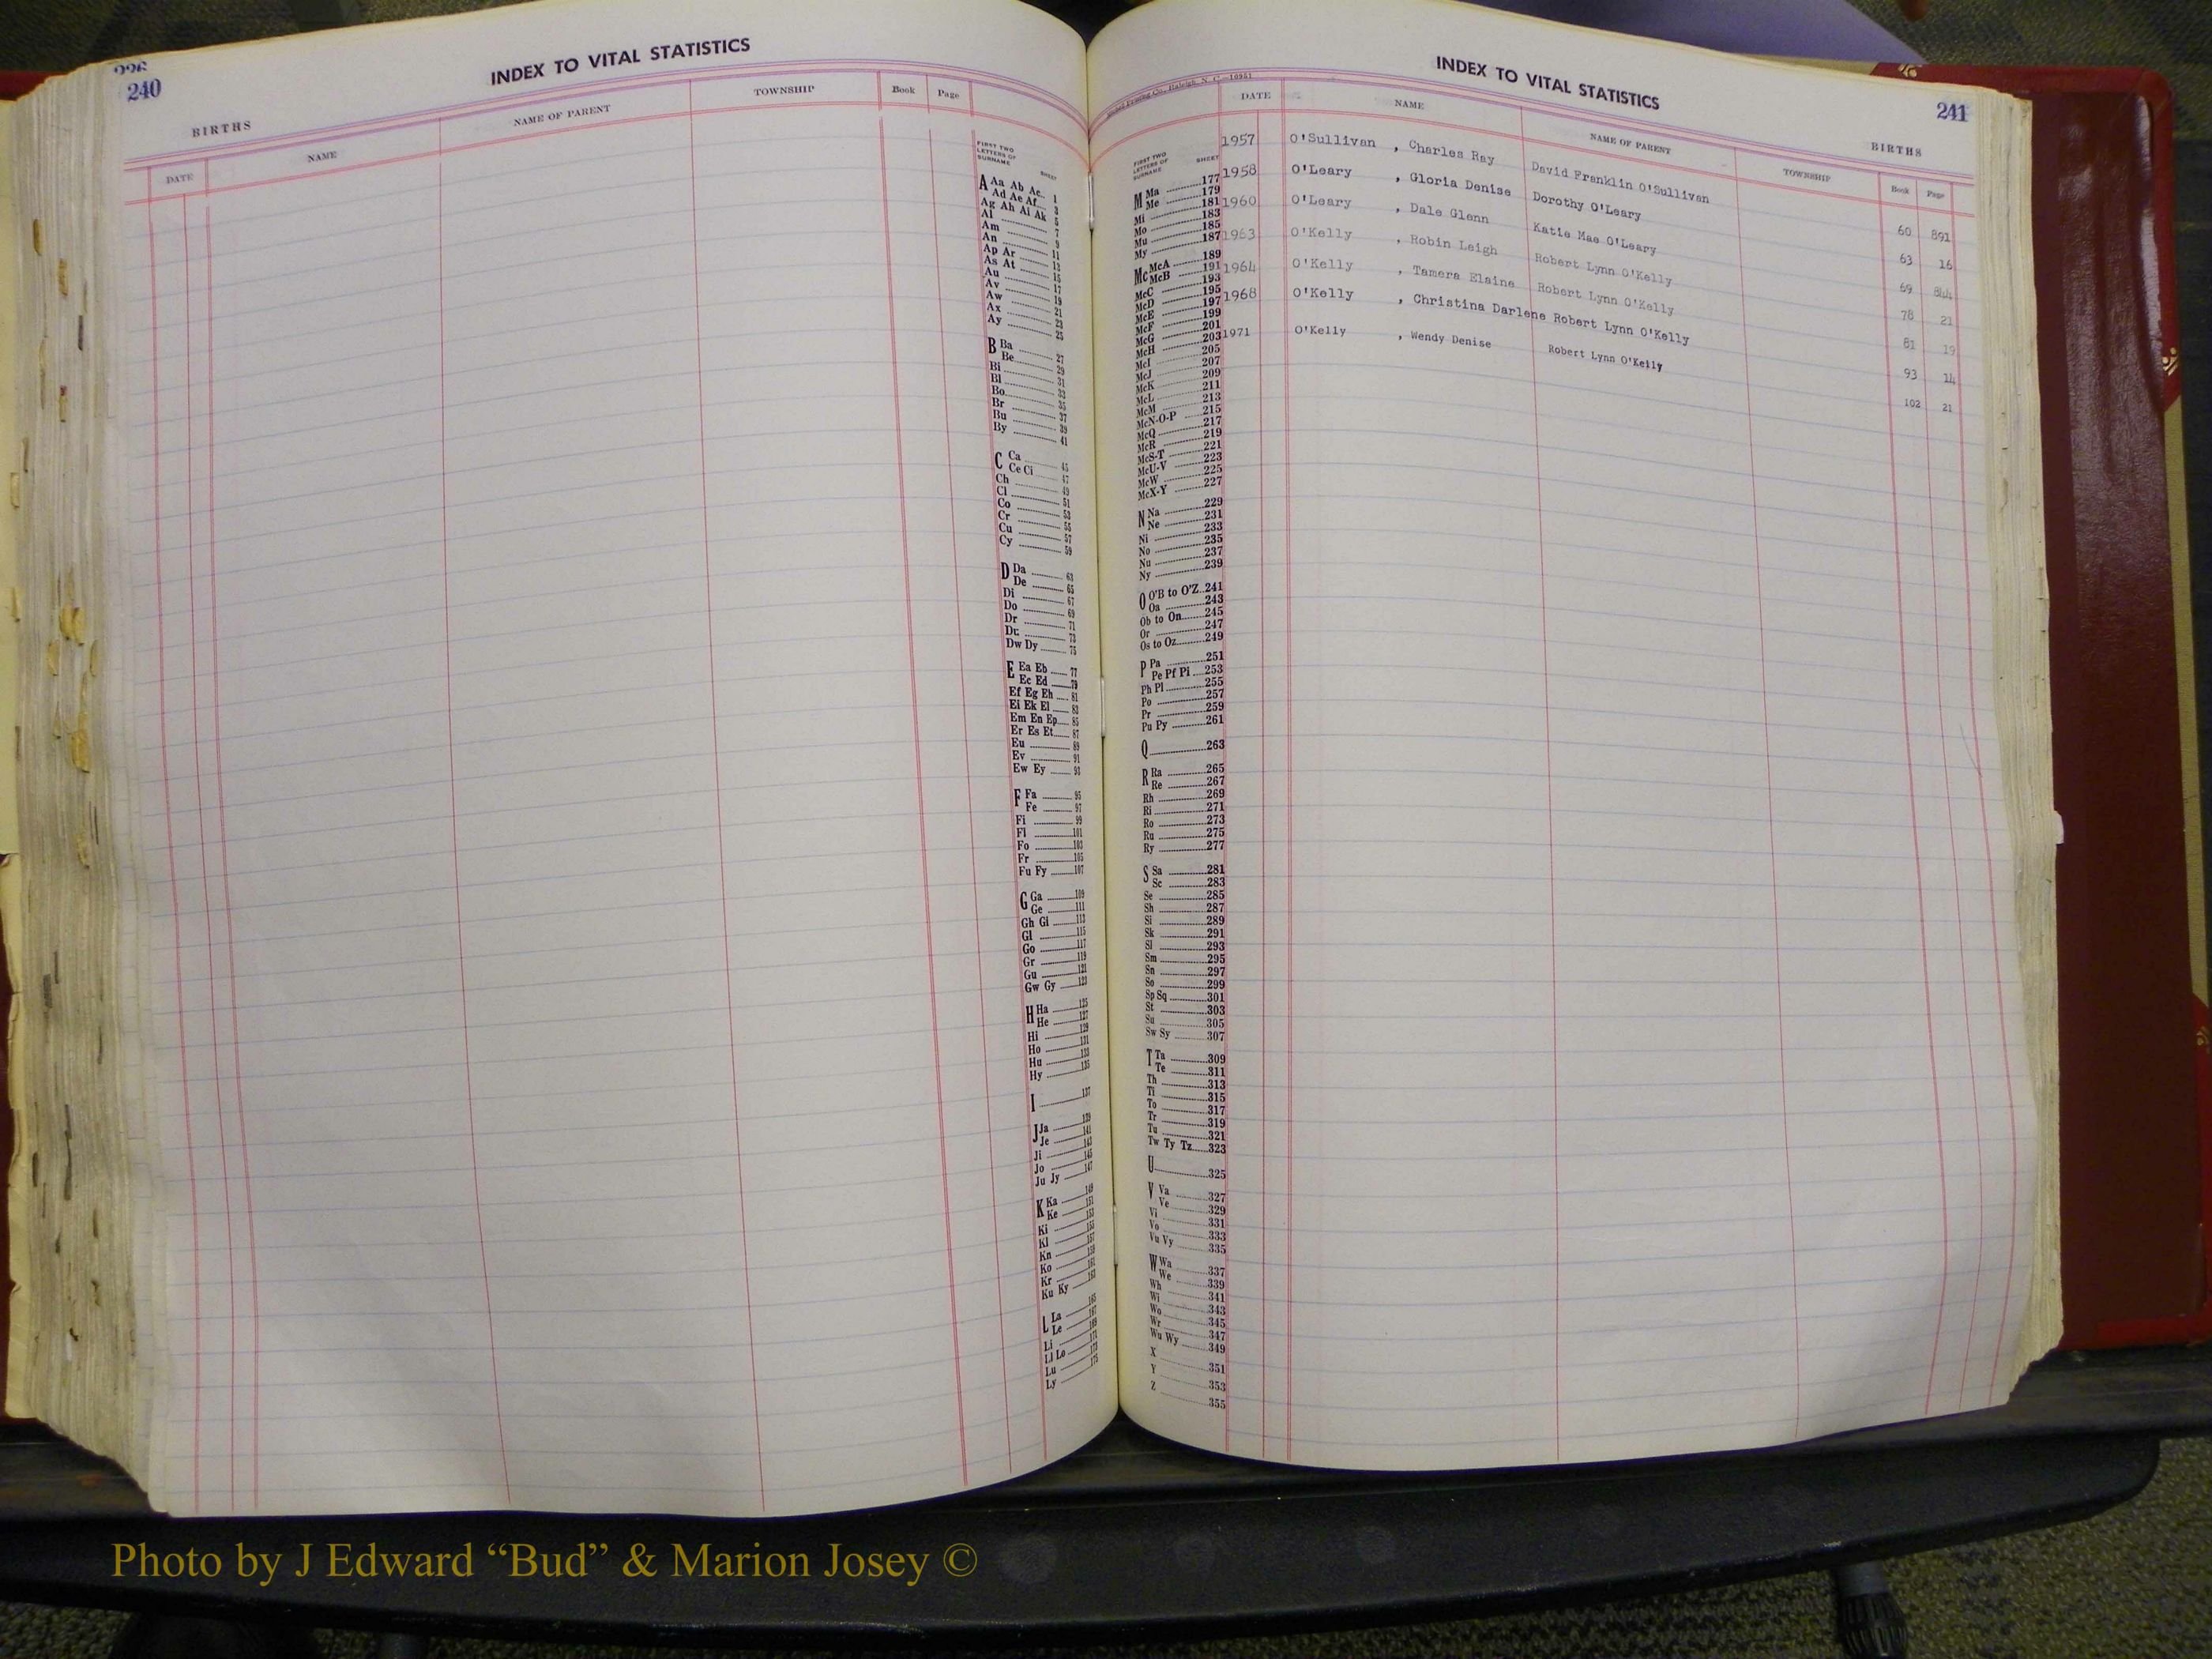 226
240
INDEX TO VITAL STATISTICS
BIRTHS
DATE
NAME
NAME OF PARENT
TOWNSHIP
Book
Page
FIRST TWO
LETTERS OF
SURNAME
SHEET
A Aa Ab Ac 1
Ad Ae Af 3
Ag Ah Ai Ak 5
Al 7
Am 9
An 11
Ap Ar 13
As At 15
Au 17
Av 19
Aw 21
Ax 23
Ay 25
B Ba 27
Be 29
Bi 31
Bl 33
Bo 35
Br 37
Bu 39
By 41
C Ca 45
Ce Ci 47
Ch 49
Cl 51
Co 53
Cr 55
Cu 57
Cy 59
D Da 63
De 65
Di 67
Do 69
Dr 71
Du 73
Dw Dy 75
E Ea Eb 77
Ec Ed 79
Ef Eg Eh 81
Ei Ek El 83
Em En Ep 85
Er Es Et 87
Eu 89
Ev 91
Ew Ey 93
F Fa 95
Fe 97
Fi 99
Fl 101
Fo 103
Fr 105
Fu Fy 107
G Ga 109
Ge 111
Gh Gi 113
Gl 115
Go 117
Gr 119
Gu 121
Gw Gy 123
H Ha 125
He 127
Hi 129
Ho 131
Hu 133
Hy 135
I 137
J Ja 139
Je 141
Ji 143
Jo 145
Ju Jy 147
K Ka 149
Ke 151
Ki 153
Kl 155
Kn 157
Ko 159
Kr 161
Ku Ky 163
L La 165
Le 167
Li 169
Ll Lo 171
Lu 173
Ly 175
INDEX TO VITAL STATISTICS
241
BIRTHS
Co., Raleigh, N. C.—10951
DATE
NAME
NAME OF PARENT
TOWNSHIP
Book
Page
1957 O'Sullivan , Charles Ray David Franklin O'Sullivan 60 891
1958 O'Leary , Gloria Denise Dorothy O'Leary 63 16
1960 O'Leary , Dale Glenn Katie Mae O'Leary 69 844
1963 O'Kelly , Robin Leigh Robert Lynn O'Kelly 78 21
1964 O'Kelly , Tamera Elaine Robert Lynn O'Kelly 81 19
1968 O'Kelly , Christina Darlene Robert Lynn O'Kelly 93 14
1971 O'Kelly , Wendy Denise Robert Lynn O'Kelly 102 21
FIRST TWO
LETTERS OF
SURNAME
SHEET
M Ma 177
Me 179
Mi 181
Mo 183
Mu 185
My 187
Mc McA 189
McB 191
McC 193
McD 195
McE 197
McF 199
McG 201
McH 203
McI 205
McJ 207
McK 209
McL 211
McM 213
McN-O-P 215
McQ 217
McR 219
McS-T 221
McU-V 223
McW 225
McX-Y 227
N Na 229
Ne 231
Ni 233
No 235
Nu 237
Ny 239
O O'B to O'Z 241
Oa 243
Ob to On 245
Or 247
Os to Oz 249
P Pa 251
Pe Pf Pi 253
Ph Pl 255
Po 257
Pr 259
Pu Py 261
Q 263
R Ra 265
Re 267
Rh 269
Ri 271
Ro 273
Ru 275
Ry 277
S Sa 281
Sc 283
Se 285
Sh 287
Si 289
Sk 291
Sl 293
Sm 295
Sn 297
So 299
Sp Sq 301
St 303
Su 305
Sw Sy 307
T Ta 309
Te 311
Th 313
Ti 315
To 317
Tr 319
Tu 321
Tw Ty Tz 323
U 325
V Va 327
Ve 329
Vi 331
Vo 333
Vu Vy 335
W Wa 337
We 339
Wh 341
Wi 343
Wo 345
Wr 347
Wu Wy 349
X 351
Y 353
Z 355
Photo by J Edward “Bud” & Marion Josey ©